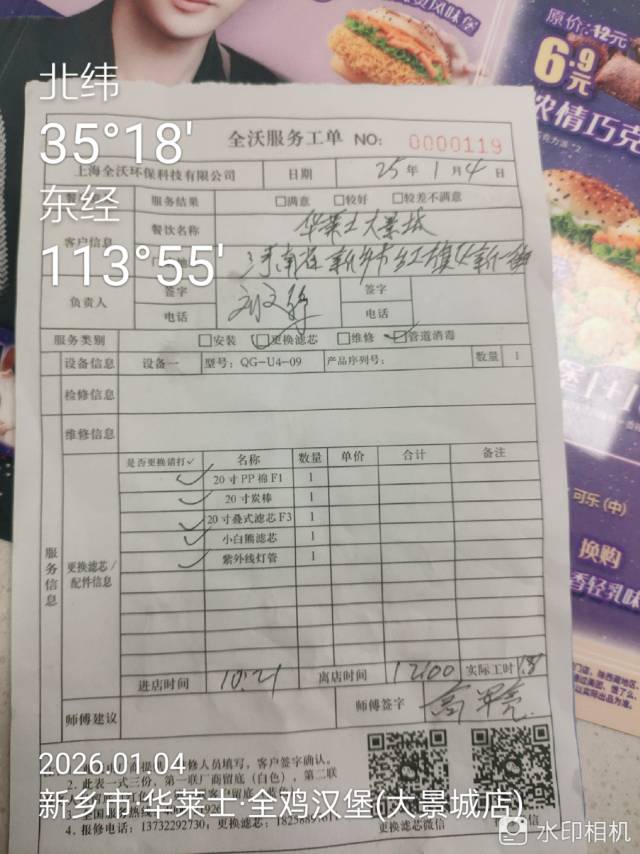 风味堡
原价:12元
6.9元
浓情巧克
北纬
35°18'
东经
113°55'
全沃服务工单 NO: 0000119
上海全沃环保科技有限公司 日期 25年1月4日
服务结果 □满意 □较好 □较差不满意
客户信息 餐饮名称 华莱士大景城
河南省新乡市红旗区新一街
负责人 签字 签字
电话 电话
服务类别 □安装 ☑更换滤芯 □维修 ☑管道消毒
设备信息 设备一 型号: QG-U4-09 产品序列号: 数量 1
检修信息
维修信息
服务信息
更换滤芯/配件信息
是否更换请打✓ 名称 数量 单价 合计 备注
✓ 20寸PP棉F1 1
✓ 20寸炭棒 1
✓ 20寸叠式滤芯F3 1
✓ 小白熊滤芯 1
✓ 紫外线灯管 1
进店时间 10:21 离店时间 12:00 实际工时
师傅建议 师傅签字
可乐(中)
换购
香轻乳味
2026.01.04
修人员填写，客户签字确认。
2. 此表一式三份，第一联厂商留底（白色），第二联
新乡市·华莱士·全鸡汉堡(大景城店)
4. 报修电话: 13732292730, 更换滤芯:
更换滤芯微信
水印相机